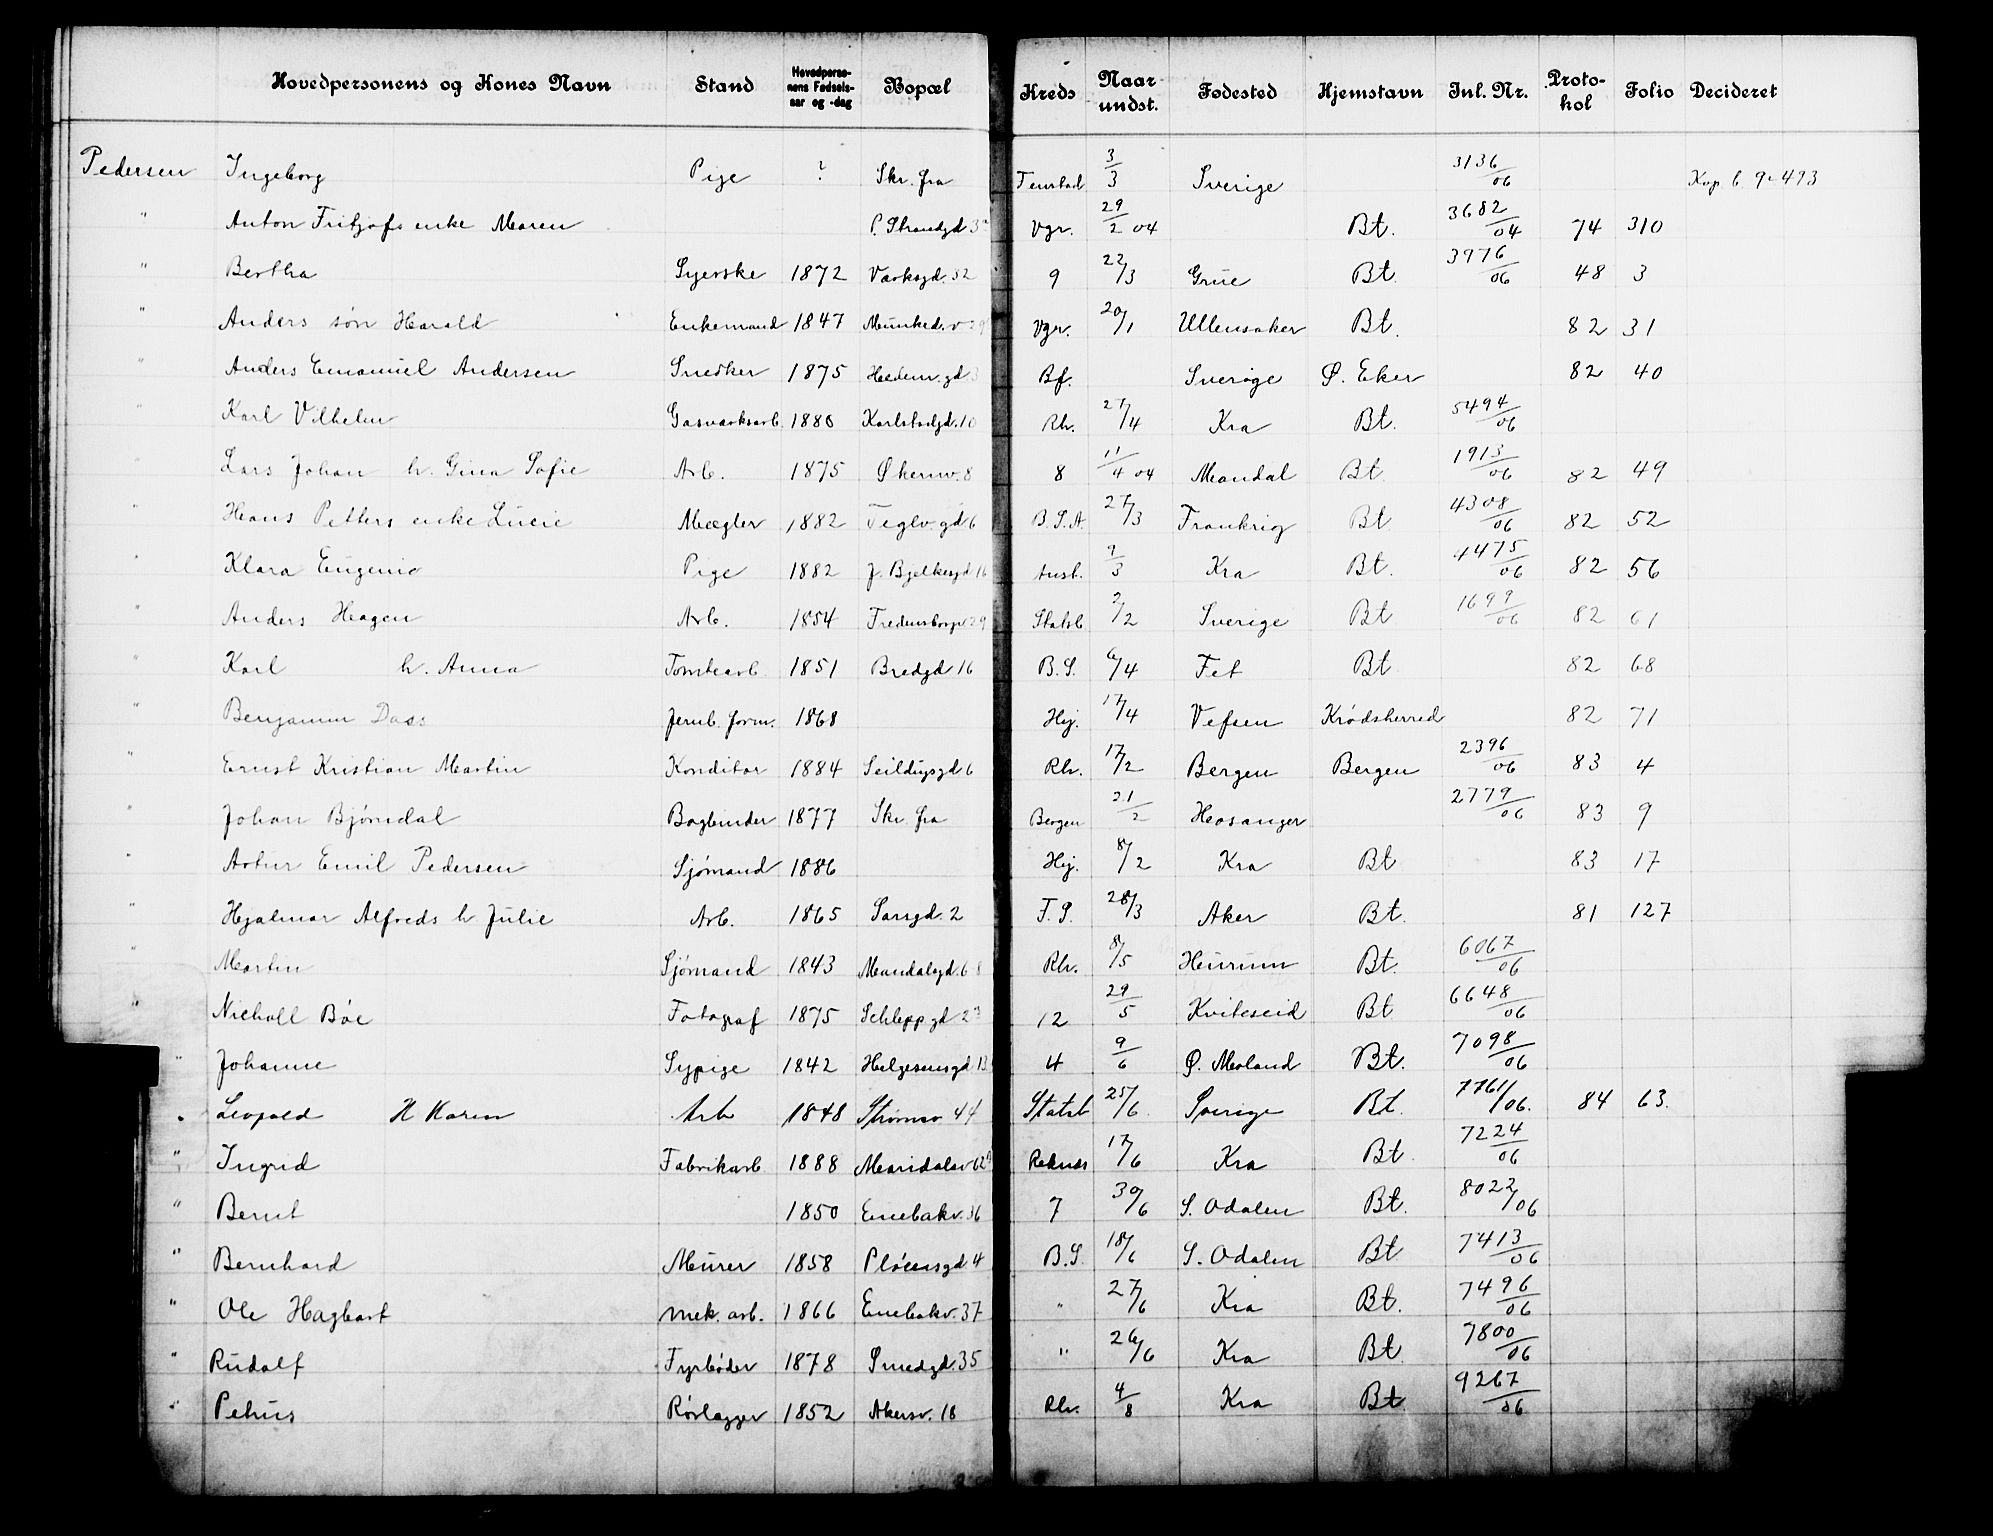 Hovedpersonens og Kones Navn Stand Hovedperso-nens Fødsels-aar og -dag Bopæl Kreds Naar undst. Fødested Hjemstavn Jnl. Nr. Proto-kol Folio Decideret
Pedersen Ingeborg Pige ? Skr. fra Fenstad 3/3 Sverige 3136/06 Kop b 9-493
" Anton Fritjofs enke Maren P. Strandgd Vgr. 29/2 04 Bt. 3682/04 74 310
" Bertha Syerske 1872 Værksgd. 32 9 22/3 Grue Bt. 3976/06 48 3
" Anders søn Harald Enkemand 1847 Munked.v 29 Vgr. 20/1 Ullensaker Bt. 82 31
" Anders Emanuel Andersen Snedker 1875 Hedem.gd 3 Bf. Sverige Ø. Eker 82 40
" Karl Vilhelm Gasværksarb. 1880 Karlstadgd. 10 Rh. 27/4 Kra Bt. 5494/06
" Lars Johan h. Gina Sofie Arb. 1875 Økernv. 8 8 11/4 04 Mandal Bt. 1913/06 82 49
" Hans Petters enke Lucie Mægler 1882 Teglv.gd 6 B.S.A. 27/3 Frankrig Bt 4308/06 82 52
" Klara Eugenie Pige 1882 J. Bjelkesgd 16 Anst. 9/3 Kra Bt. 4475/06 82 56
" Anders Hagen Arb. 1854 Fredensborgv 29 Statsb 2/2 Sverige Bt 1699/06 82 61
" Karl h. Anna Tomtearb. 1851 Bredgd 16 B.S. 6/4 Fet Bt 82 68
" Benjamin Dass Jernb. form. 1868 Hij. 17/4 Vefsen Krødsherred 82 71
" Ernst Kristian Martin Konditor 1884 Seildugsgd 6 Rh. 17/2 Bergen Bergen 2396/06 83 4
" Johan Bjørndal Bogbinder 1877 Skr. fra Bergen 21/2 Hosanger 2779/06 83 9
" Artur Emil Pedersen Sjømand 1886 Hij. 8/2 Kra Bt 83 17
" Hjalmar Alfreds h. Julie Arb. 1865 Sarsgd. 2 F.S. 28/3 Aker Bt. 81 127
" Martin Sjømand 1843 Mandalsgd. 6 8 Rh. 8/5 Hurum Bt. 6067/06
" Nicholl Bøe Fotograf 1875 Schleppgd 23 12 29/5 Kviteseid Bt 6648/06
" Johanne Sypige 1842 Helgesensgd 13 4 9/6 Ø. Moland Bt. 7098/06
" Leopold H Karen Arb 1848 Strømsv 44 Statsb 25/6 Sverige Bt. 7761/06. 84 63.
" Ingrid Fabrikarb 1888 Maridalsv 62 Reknes 17/6 Kra Bt. 7224/06
" Bernt 1850 Enebakv. 36 7 30/6 S. Odalen Bt. 8022/06
" Bernhard Murer 1858 Pløensgd. 4 B.S. 18/6 S. Odalen Bt 7413/06
" Ole Hagbart mek. arb. 1866 Enebakv. 37 " 27/6 Kra Bt. 7496/06
" Rudolf Fyrbøder 1878 Smedgd. 35 " 26/6 Kra Bt 7800/06
" Petrus Rørlægger 1852 Akersv. 18 Rh. 4/8 Kra Bt. 9267/06